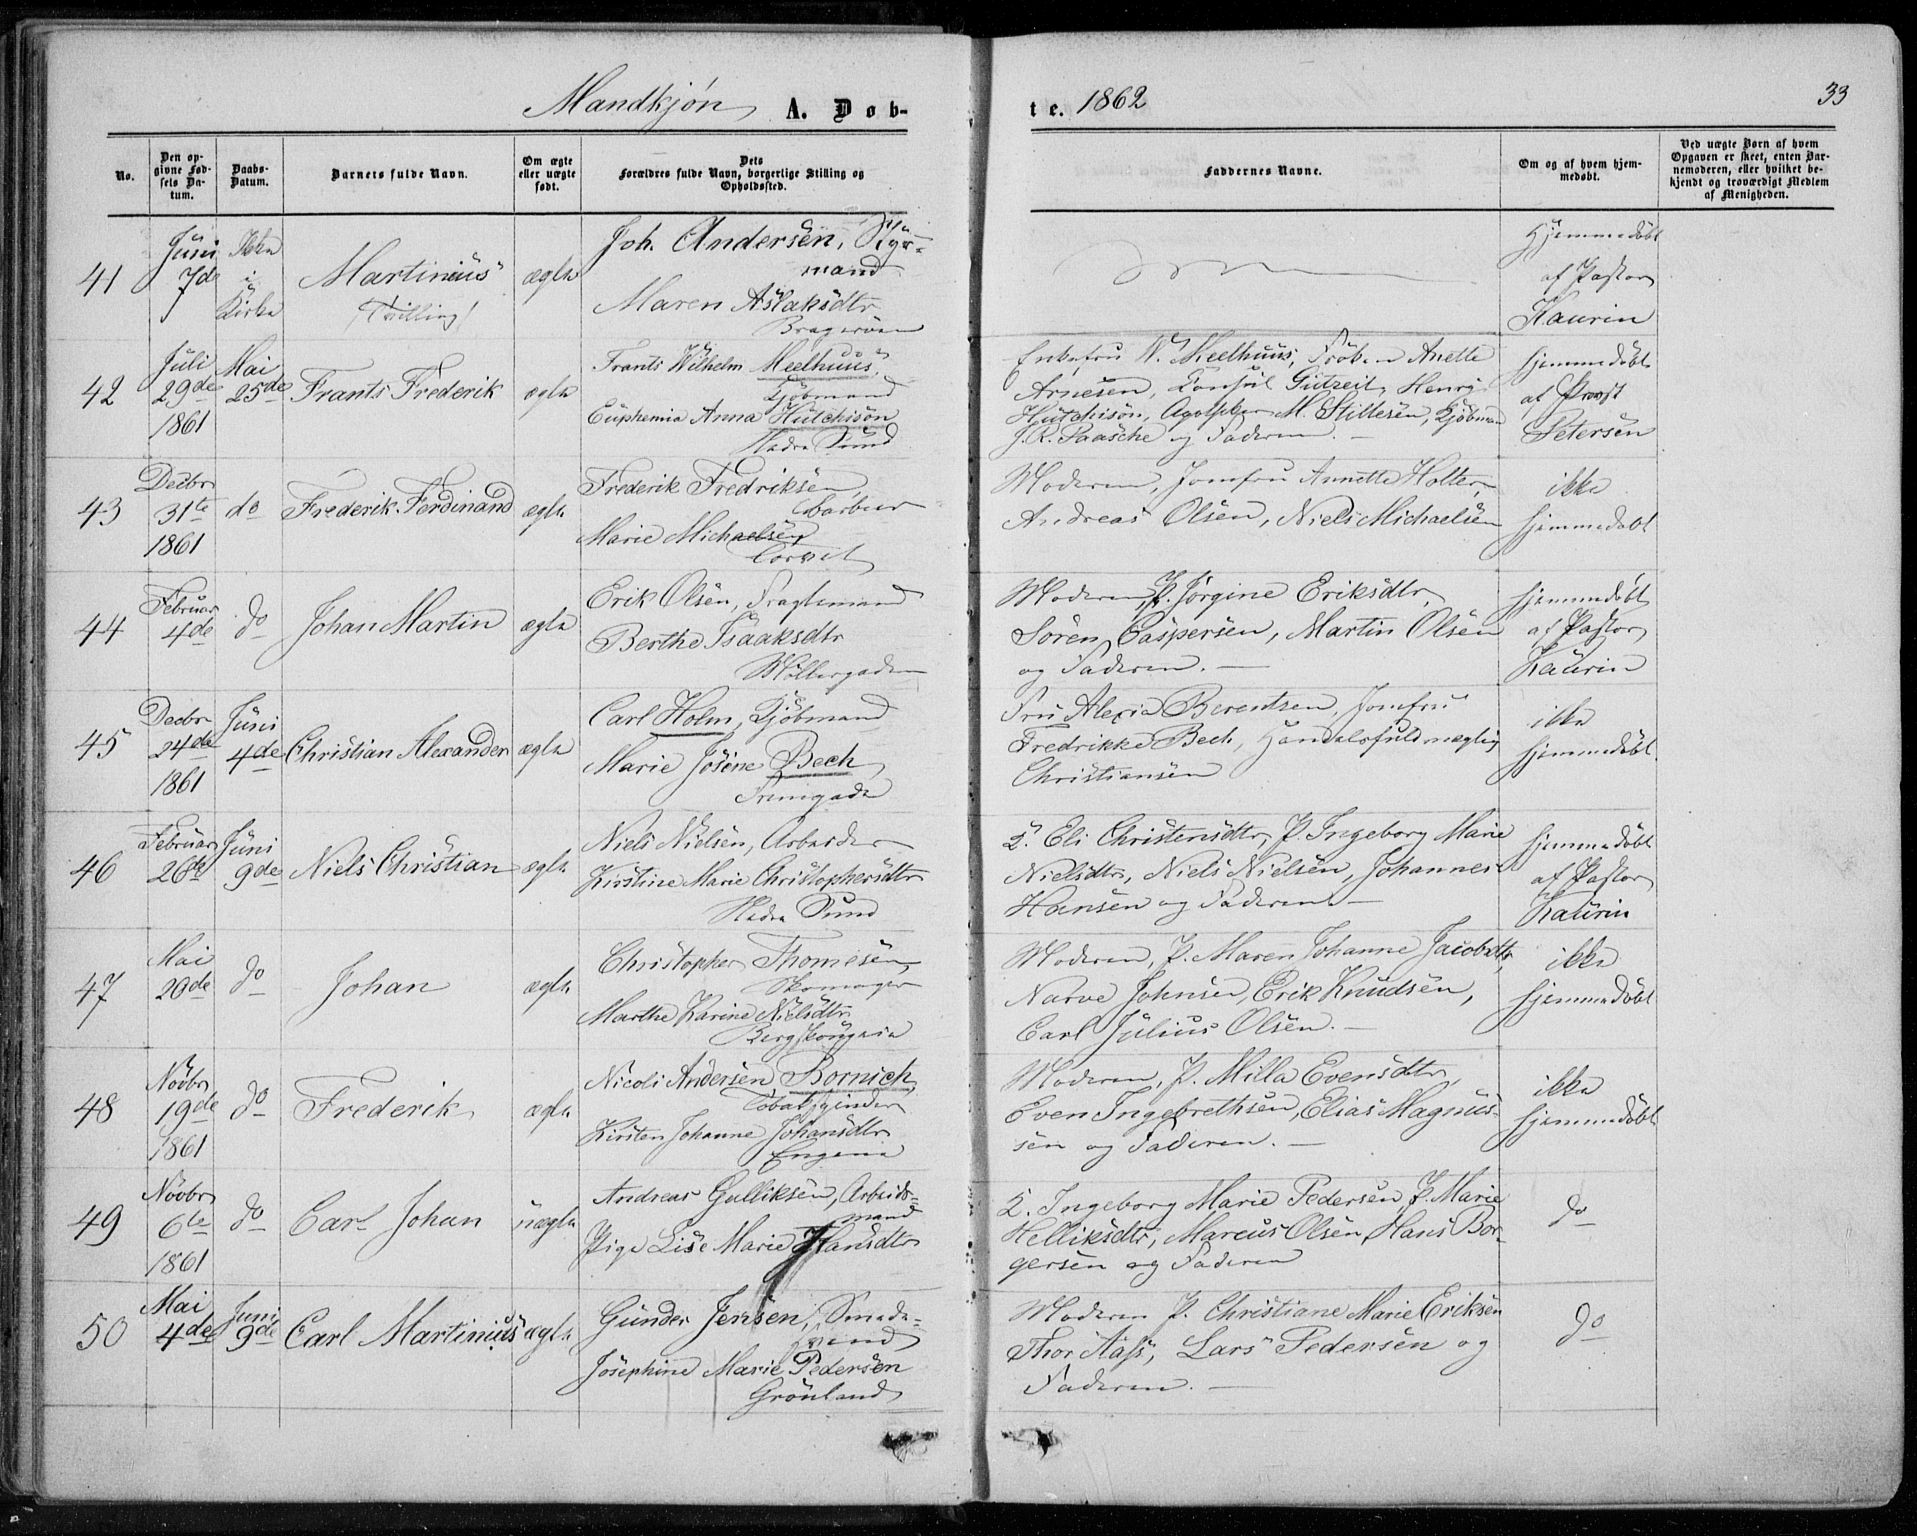 Mandkjøn A. Døb-
te. 1862 33
No.
Den opgivne Fødsels Datum.
Daabs-Datum.
Barnets fulde Navn.
Om ægte eller uægte født.
Dets Forældres fulde Navn, borgerlige Stilling og Opholdssted.
Faddernes Navne.
Om og af hvem hjemmedøbt.
Ved uægte Børn af hvem Opgaven er skeet, enten Barnemoderen, eller hvilket bekjendt og troværdigt Medlem af Menigheden.
41
Juni 7de
Ikke i Kirke
Martinius
(Trilling)
ægte
Joh. Andersen, Styr-
mand
Maren Aslaksdtr
Bragerøen
Hjemmedøbt
af Pastor
Kaurin
42
Juli 29de 1861
Mai 25de
Frants Frederik
ægte
Frants Wilhelm Meelhuus,
Kjøbmand
Euphemia Anna Hutchison
Nedre Sund
Enkefru W. Meelhuus, Frøken Anette
Arnesen, Konsul Gutzeit, Henry
Hutchison, M. Stillesen, Kjøbmn
J. R. Paasche og Faderen. —
hjemmedøbt
af Provst
Petersen
43
Decbr 31te 1861
do
Frederik Ferdinand
ægte
Frederik Fredriksen
Barbeer
Marie Michaelsen
Torvet
Moderen, Jomfru Annette Holter,
Andreas Olsen, Niels Michaelsen
ikke
hjemmedøbt
44
Februar 4de
do
Johan Martin
ægte
Erik Olsen, Fragtemand
Berthe Isaaksdtr
Møllergaden
Moderen, P. Jørgine Eriksdtr,
Søren Caspersen, Martin Olsen
og Faderen. —
hjemmedøbt
af Pastor
Kaurin
45
Decbr 24de 1861
Juni 4de
Christian Alexander
ægte
Carl Holm, Kjøbmand
Marie Josine Bech
Fru Alexia Berentsen, Jomfru
Fredrikke Bech, Handelsfuldmægtig
Christiansen
ikke
hjemmedøbt
46
Februar 26de
Juni 9de
Niels Christian
ægte
Niels Nielsen, Arbeider
Kirstine Marie Christophersdtr
Nedre Sund
K. Eli Christensdtr, P. Ingeborg Marie
Nielsdtr, Niels Nielsen, Johannes
Hansen og Faderen. —
hjemmedøbt
af Pastor
Kaurin
47
Mai 20de
do
Johan
ægte
Christopher Thomesen,
Skomager
Marthe Karine Nielsdtr
Moderen, P. Maren Johanne Jacobsdtr,
Narve Johnsen, Erik Knudsen,
Carl Julius Olsen. —
ikke
hjemmedøbt
48
Novbr 19de 1861
do
Frederik
ægte
Nicoli Andersen Bornich,
Tobakspinder
Kirsten Johanne Johansdtr
Engene
Moderen, P. Milla Evensdtr,
Even Ingebrethsen, Elias Magnus-
sen og Faderen. —
ikke
hjemmedøbt
49
Novbr 6te 1861
do
Carl Johan
uægte
Andreas Gulliksen, Arbeids-
mand
Pige Lise Marie Hansdtr
K. Ingeborg Marie Pedersen, P. Marie
Helliksdtr, Marcus Olsen, Hans Bor-
gersen og Faderen
do
50
Mai 4de
Juni 9de
Carl Martinius
ægte
Gunder Jensen, Smede-
svend
Josephine Marie Pedersen
Grønland
Moderen P. Christiane Marie Eriksen
Thor Aass, Lars Pedersen og
Faderen. —
do